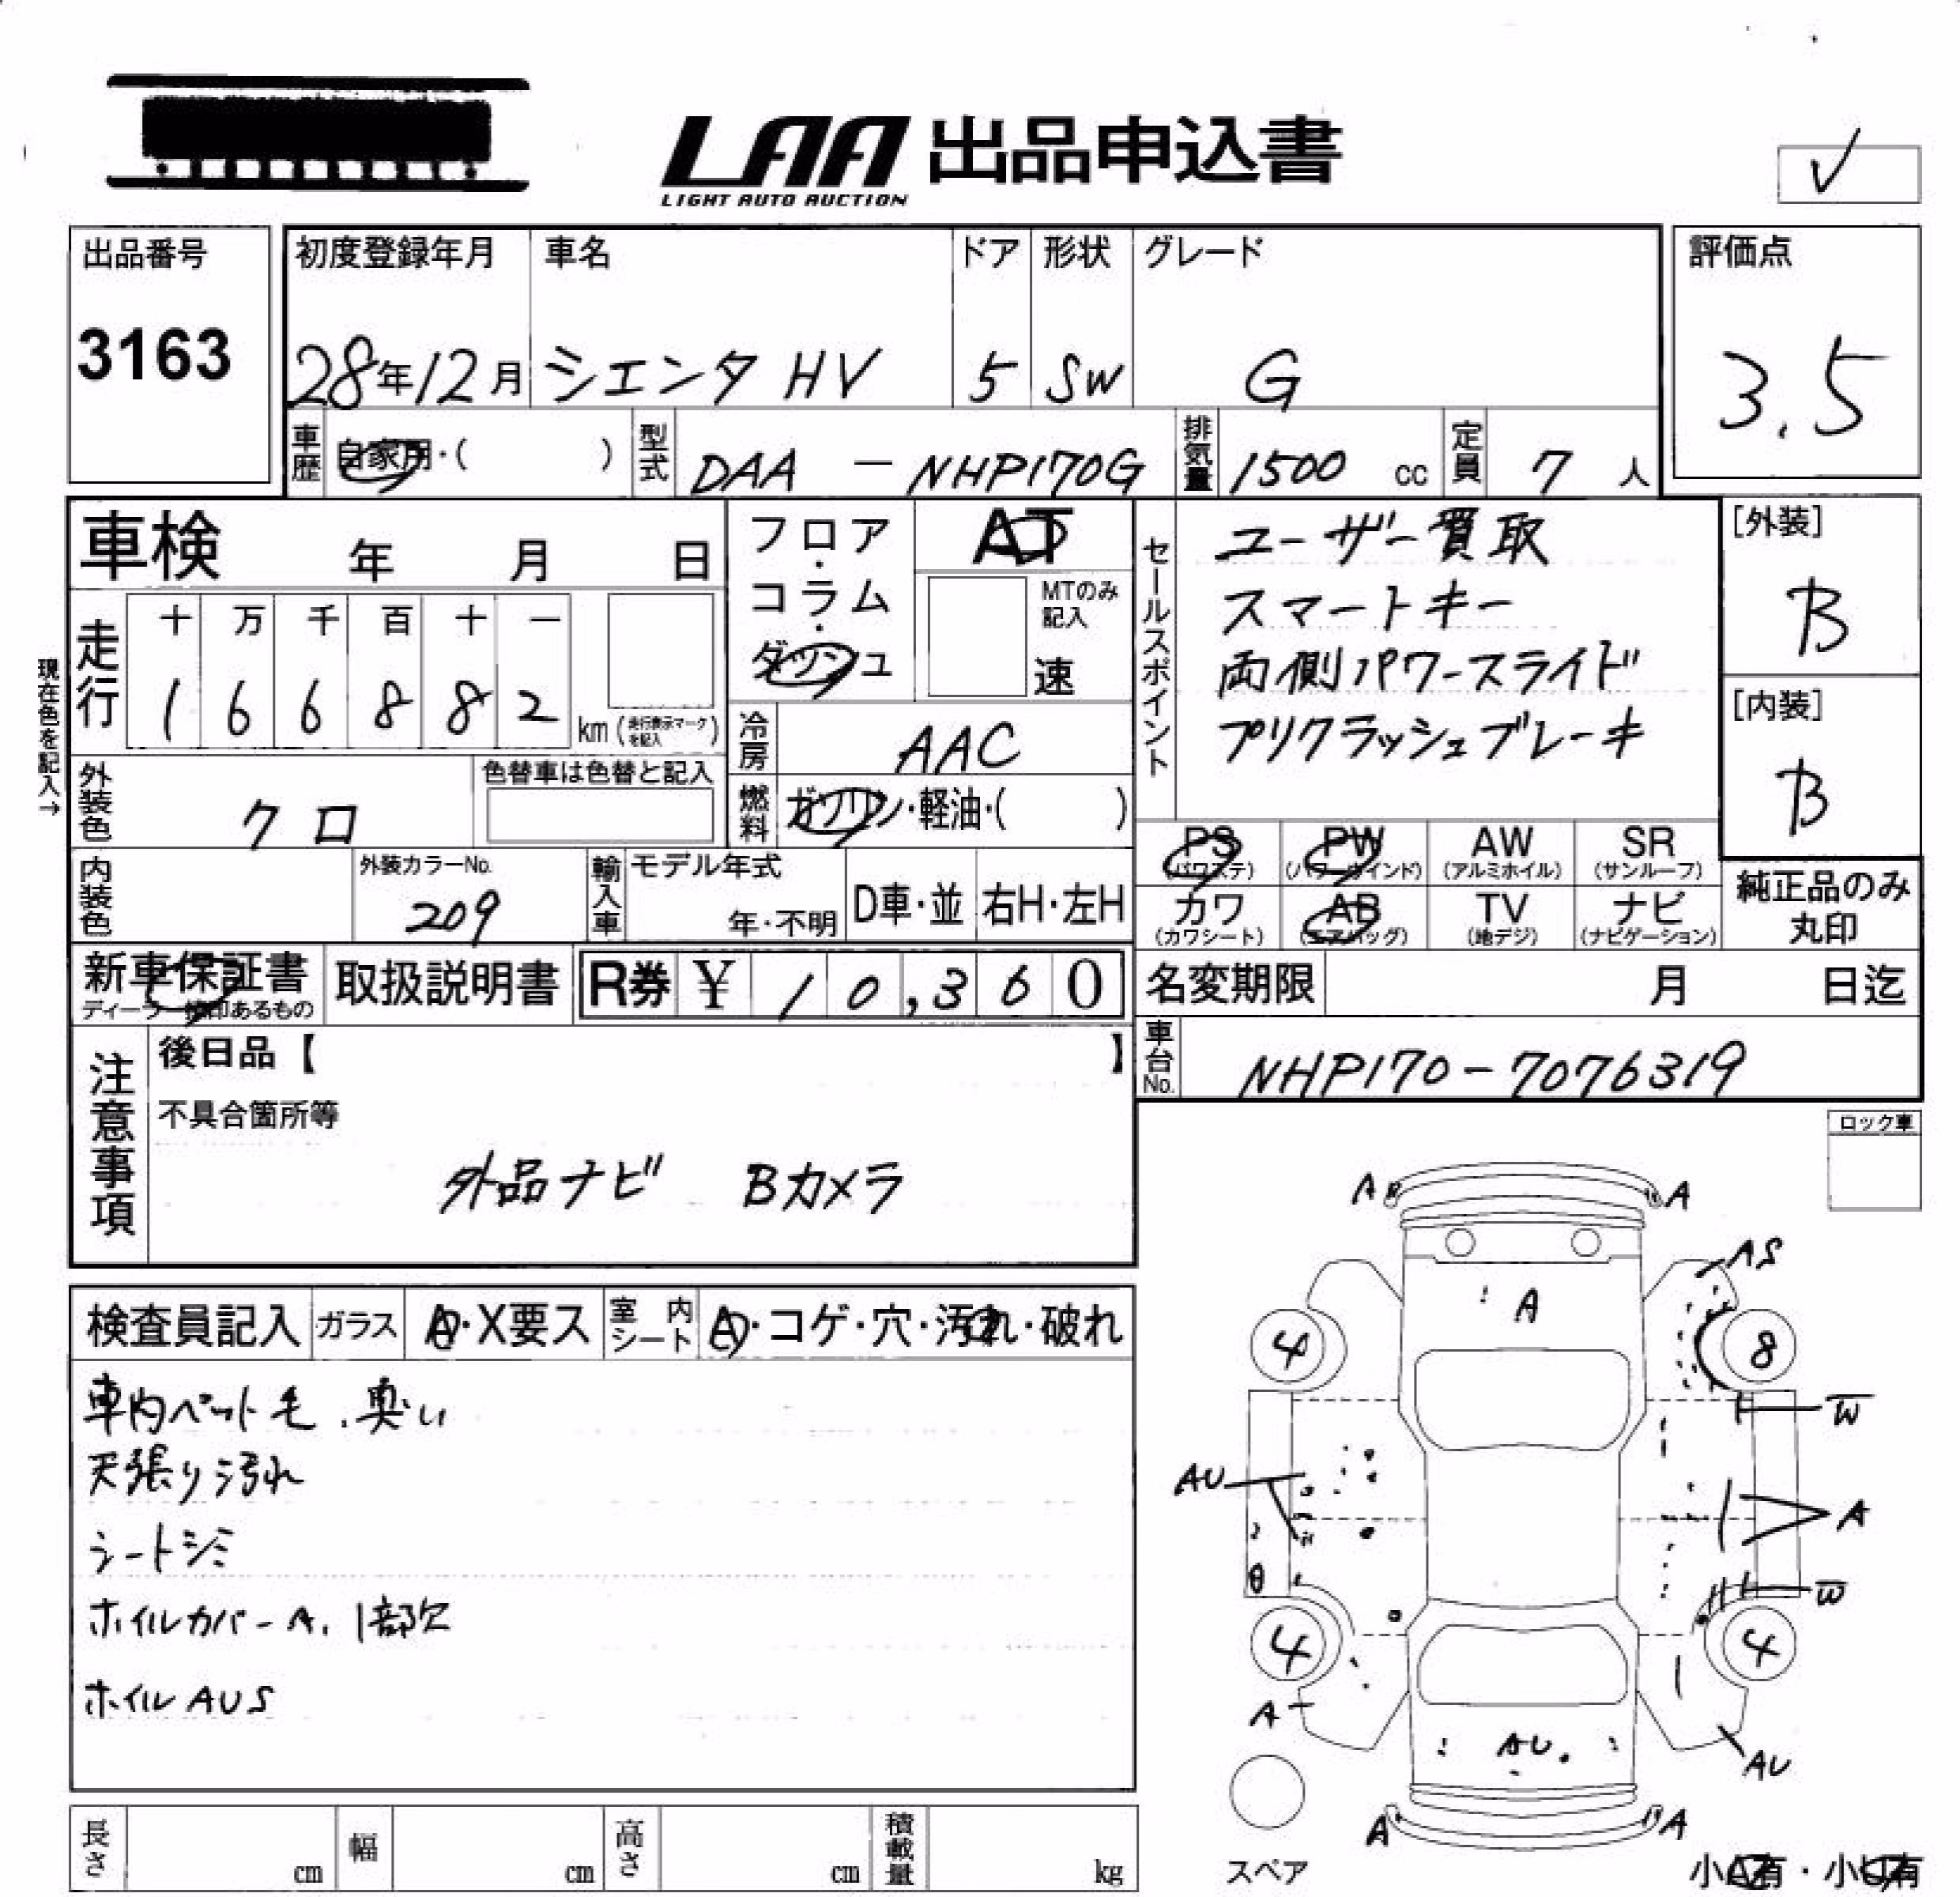 LAA 出品申込書
LIGHT AUTO AUCTION
✓
出品番号
3163
初度登録年月
28年12月
車名
シエンタ HV
ドア
5
形状
SW
グレード
G
評価点
3.5
車歴
自家用・( )
型式
DAA - NHP170G
排気量
1500 cc
定員
7 人
車検 年 月 日
現在色を記入→
走行
十 万 千 百 十 一
1 6 6 8 8 2
km (走行表示マークを記入)
フロア・コラム・ダッシュ
AT
MTのみ記入
速
冷房
AAC
燃料
ガソリン・軽油・( )
セールスポイント
ユーザー買取
スマートキー
両側パワースライド
プリクラッシュブレーキ
[外装]
B
[内装]
B
外装色
クロ
色替車は色替と記入
内装色
外装カラーNo.
209
輸入車
モデル年式
年・不明
D車・並
右H・左H
PS
(パワステ)
PW
(パワーウインド)
AW
(アルミホイル)
SR
(サンルーフ)
カワ
(カワシート)
AB
(エアバッグ)
TV
(地デジ)
ナビ
(ナビゲーション)
純正品のみ
丸印
新車保証書
取扱説明書
R券 ¥ 10,360
名変期限 月 日迄
車台No.
NHP170-7076319
注意事項
後日品【 】
不具合箇所等
外品ナビ Bカメラ
ロック車
検査員記入
ガラス
A・X要ス
室内シート
A・コゲ・穴・汚れ・破れ
車内ペット毛.臭い
天張り汚れ
シートシミ
ホイルカバーA.1部欠
ホイルAUS
A
A
AS
A
4
8
W
AU
A
W
4
4
A
AU.
AU
A
A
スペア
小A有・小U有
長さ cm
幅 cm
高さ cm
積載量 kg